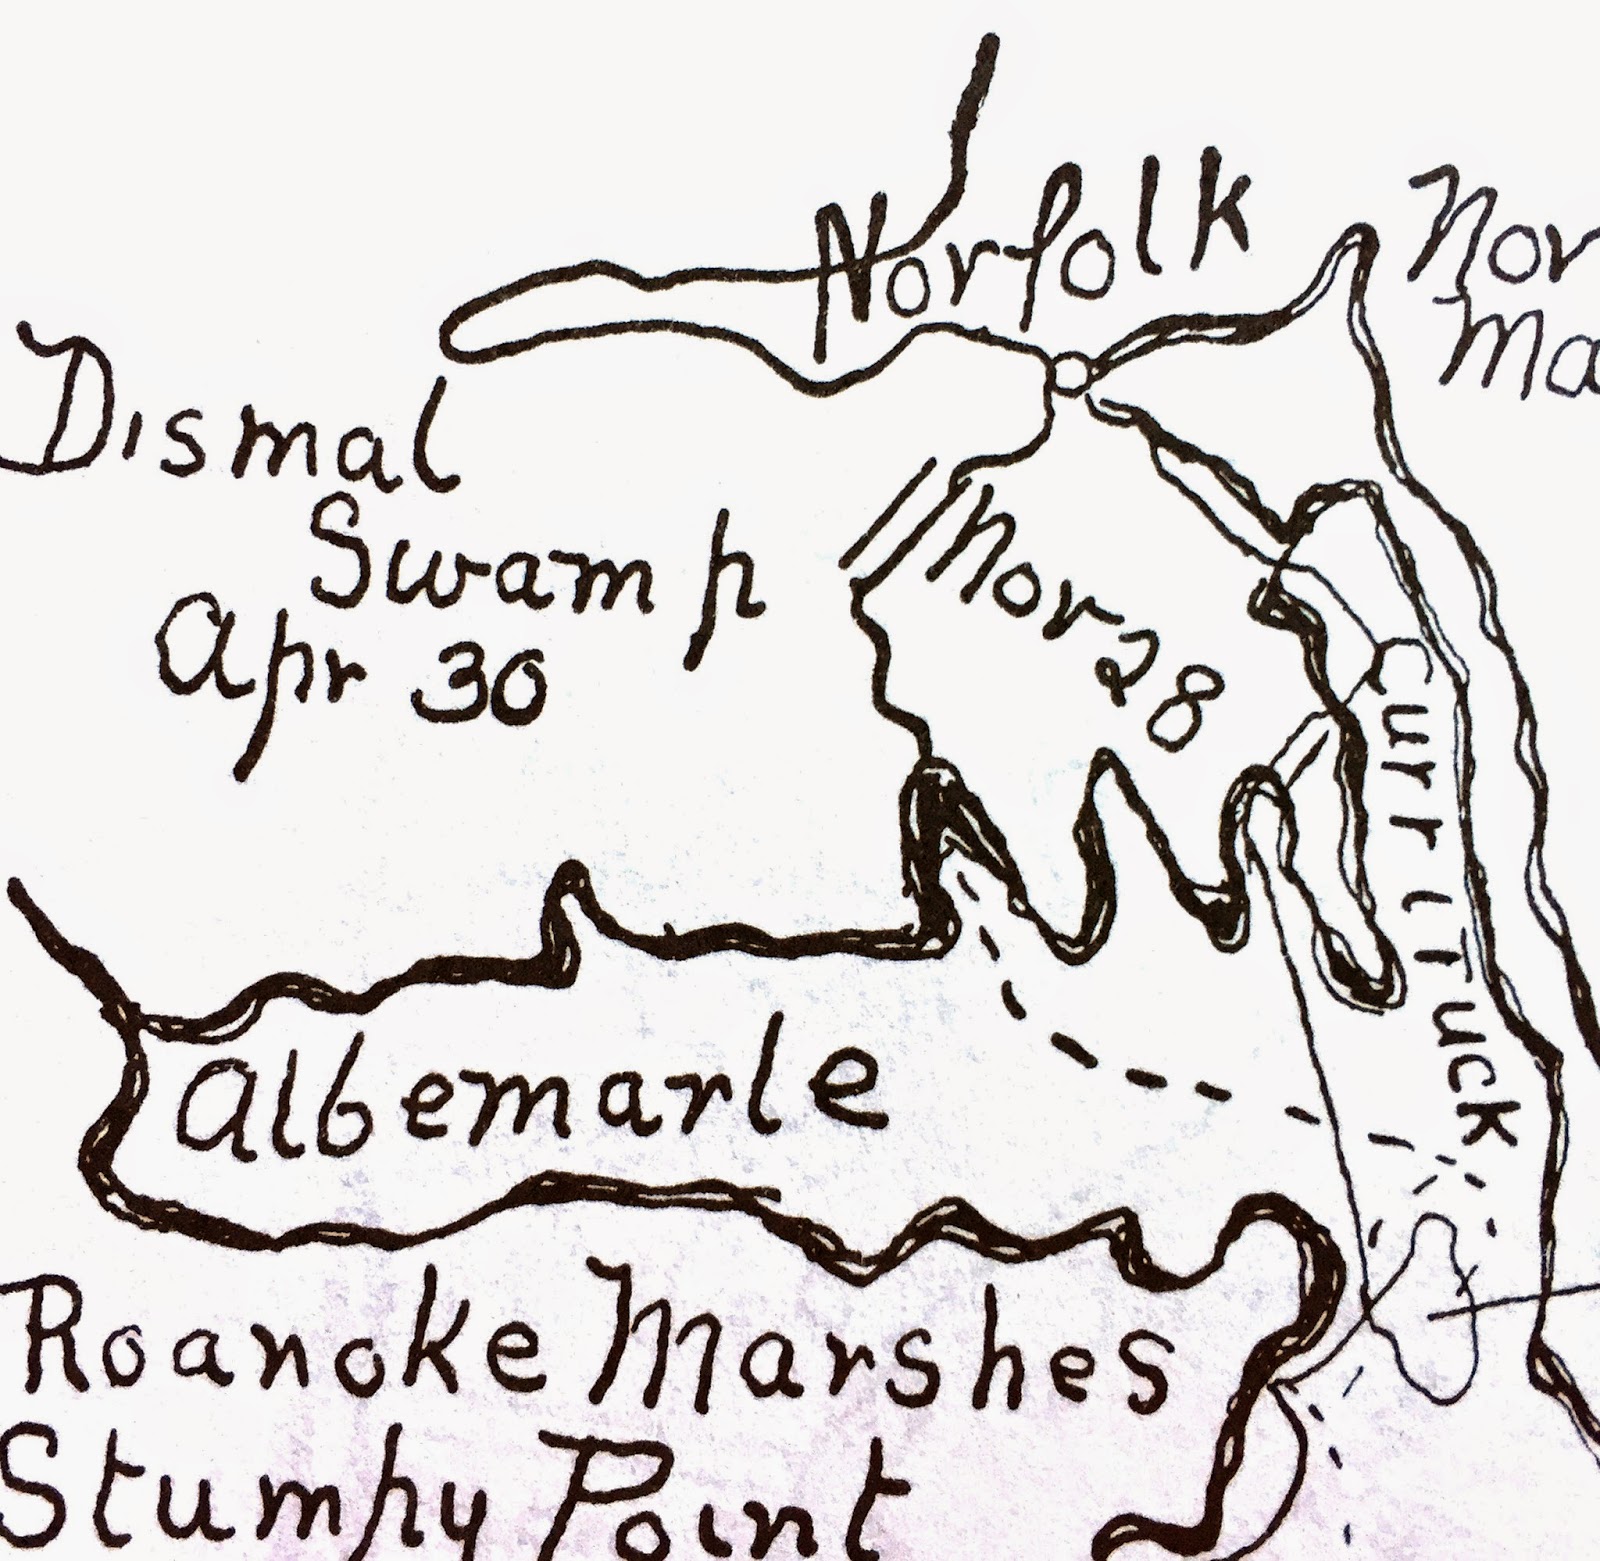 Norfolk
Nor
Ma
Dismal
Swamp
Apr 30
Nor 28
Currituck
Albemarle
Roanoke Marshes
Stumpy Point